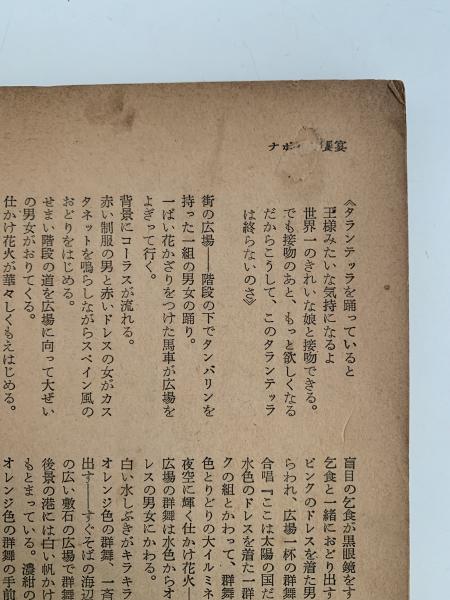 ナポ 饗宴
《タランテッラを踊っていると
王様みたいな気持になるよ
世界一のきれいな娘と接吻できる。
でも接吻のあと、もっと欲しくなる
だからこうして、このタランテッラ
は終らないのさ》
街の広場――階段の下でタンバリンを
持った一組の男女の踊り。
一ぱい花かざりをつけた馬車が広場を
よぎって行く。
背景にコーラスが流れる。
赤い制服の男と赤いドレスの女がカス
タネットを鳴らしながらスペイン風の
おどりをはじめる。
せまい階段の道を広場に向って大ぜい
の男女がおりてくる。
仕かけ花火が華々しくもえはじめる。
盲目の乞食が黒眼鏡をす
乞食と一緒におどり出す
ピンクのドレスを着た男
らわれ、広場一杯の群舞
合唱『ここは太陽の国だ
水色のドレスを着た一群
クの組とかわって、群舞
色とりどりの大イルミネ
夜空に輝く仕かけ花火―
広場の群舞は水色からオ
レスの男女にかわる。
白い水しぶきがキラキラ
オレンジ色の群舞、一斉
出す――すぐそばの海辺
の広い敷石の広場で群舞
後景の港には白い帆かけ
もとまっている。濃紺の
オレンジ色の群舞の手前